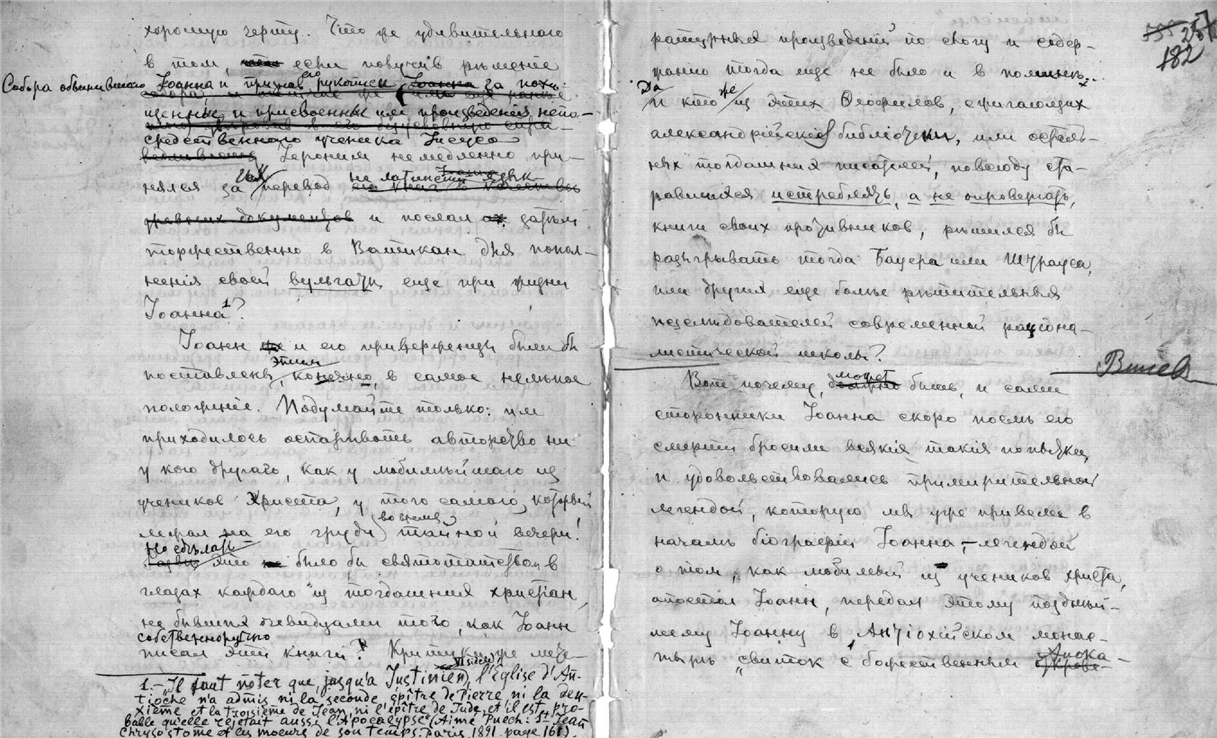 хорошую черту. Что же удивительнаго
в том, если получив решение
Собора обвинившего Иоанна и признав его рукописи за похи-
щенныя и присвоенныя им произведения непо-
средственнаго ученика Iисуса
Iероним немедленно при-
нялся за их перевод на латинский язык
и послал затем
торжественно в Ватикан для попол-
нения своей вульгаты еще при жизни
Iоанна¹?
Iоанн и его приверженцы были бы
поставлены этим, конечно, в самое нелепое
положенiе. Подумайте только: им
приходилось оспаривать авторство ни
у кого другаго, как у любимейшаго из
учеников Христа, у того самаго, который
лежал на его груди во время тайной вечери!
Не было бы святотатством в
глазах каждаго из тогдашних христiан,
не бывших очевидцами того, как Iоанн
собственноручно
писал эти книги? Критики уже лите-
1.— „Il faut noter que, jusqu'à Justinien, VI siècle, l'église d'An-
tioche n'a admis ni la seconde épître de Pierre, ni la deu-
xième et la troisième de Jean, ni l'épître de Jude, et il est pro-
bable qu'elle rejetait aussi l'Apocalypse" (Aimé Puech: St Jean
Chrysostome et les moeurs de son temps. Paris 1891. page 161).
257
182
ратурных произведенiй по слогу и содер-
жанiю тогда еще не было и в помине.
Да и кто же из этих Теофилов, сжигающих
александрийскiя библiотеки, или
тогдашних писателей, повсюду ста-
равшихся истреблять, а не опровергать,
книги своих противников, решился бы
разыгрывать тогда Бауера или Штрауса,
или других еще более решительных
изследователей современной рацiона-
листической школы?
Вот почему, может быть, и сами
сторонники Iоанна скоро после его
смерти бросили всякiя такiя попытки
и удовольствовались примирительной
легендой, которую мы уже привели в
начале бiографiи Iоанна,—легендой
о том, как любимый из учеников Христа,
апостол Iоанн, передал этому позднѣй-
шему Iоанну в Антiохiйском монас-
тыре „свиток с божественным Апока-